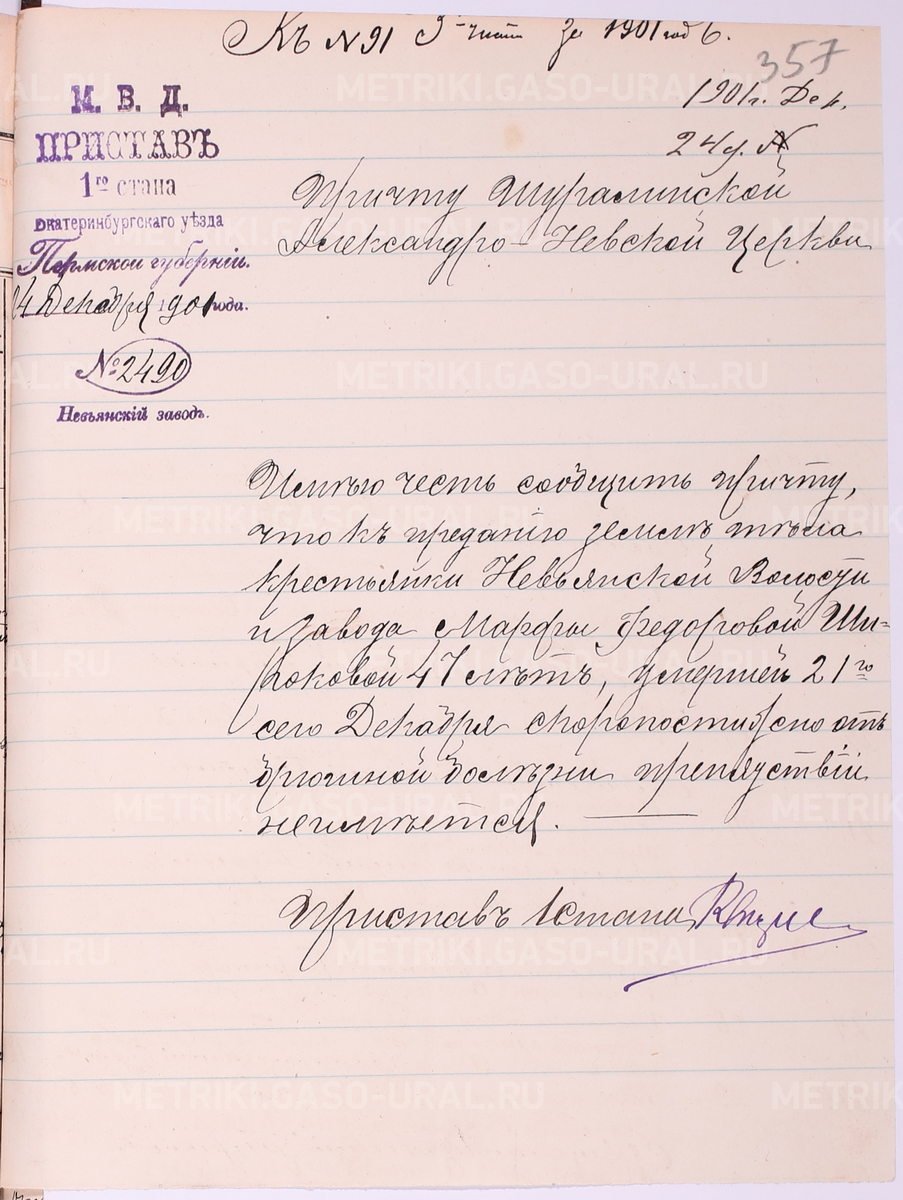 Къ № 91 3й части за 1901 годъ.
357
1901 г. Дек.
24 д. №
М. В. Д.
ПРИСТАВЪ
1го стана
Екатеринбургскаго уѣзда
Пермской губерніи.
24 Декабря 1901 года.
№ 2490
Невьянскій заводъ.
Причту Шуралинской
Александро-Невской Церкви
Имѣю честь сообщить причту,
что къ преданію землѣ тѣла
крестьянки Невьянской Волости
и завода Марфы Федоровой Ши-
роковой 47 лѣтъ, умершей 21го
сего Декабря скоропостижно отъ
брюшной болѣзни препятствій
не имѣется.
Приставъ 1 стана
METRIKI.GASO-URAL.RU